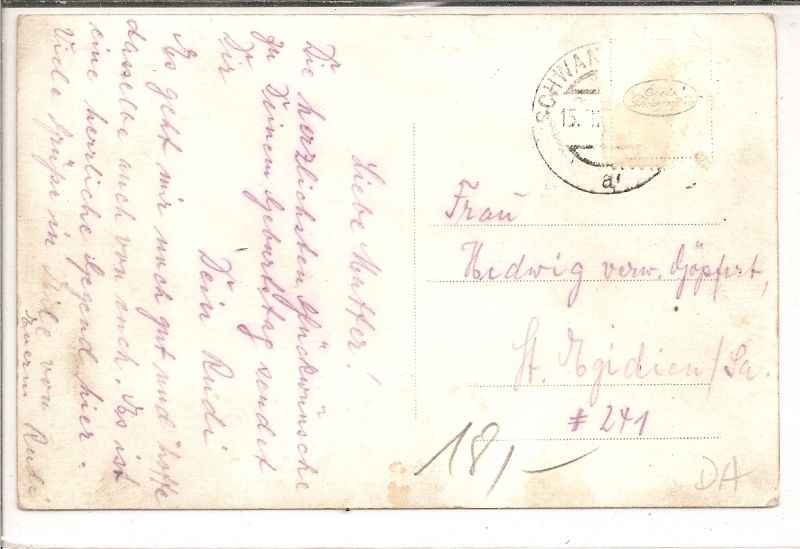 Liebe Mutter!
Die herzlichsten Glückwünsche
zu Deinem Geburtstag sendet
Dir
Dein Rudi
Es geht mir noch gut und hoffe
dasselbe auch von euch. Es ist
eine herrliche Gegend hier.
Viele Grüße in Liebe von Rudi
SCHWA
15.
a
Frau
Hedwig verw. Göpfert,
St. Egidien/Sa.
# 241
18,-
DA